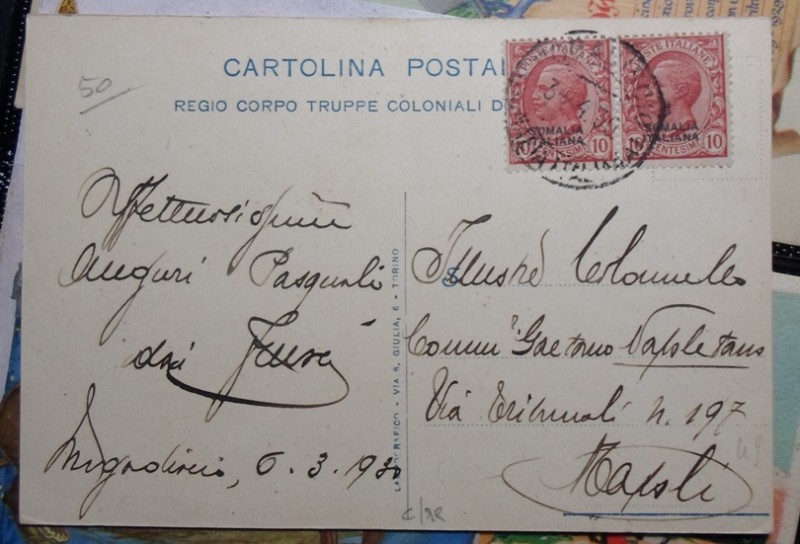 CARTOLINA POSTAL
REGIO CORPO TRUPPE COLONIALI D
50
POSTE ITALIANE
SOMALIA
ITALIANA
10 CENTESIMI 10
POSTE ITALIANE
SOMALIA
ITALIANA
CENTESIMI 10
Affettuosissimi
Auguri Pasquali
dai
Mogadiscio, 6.3.930
VIA S. GIULIA, 6 - TORINO
Illustre Colonnello
Comm. Gaetano Napoletano
Via Tribunali n. 197
Napoli